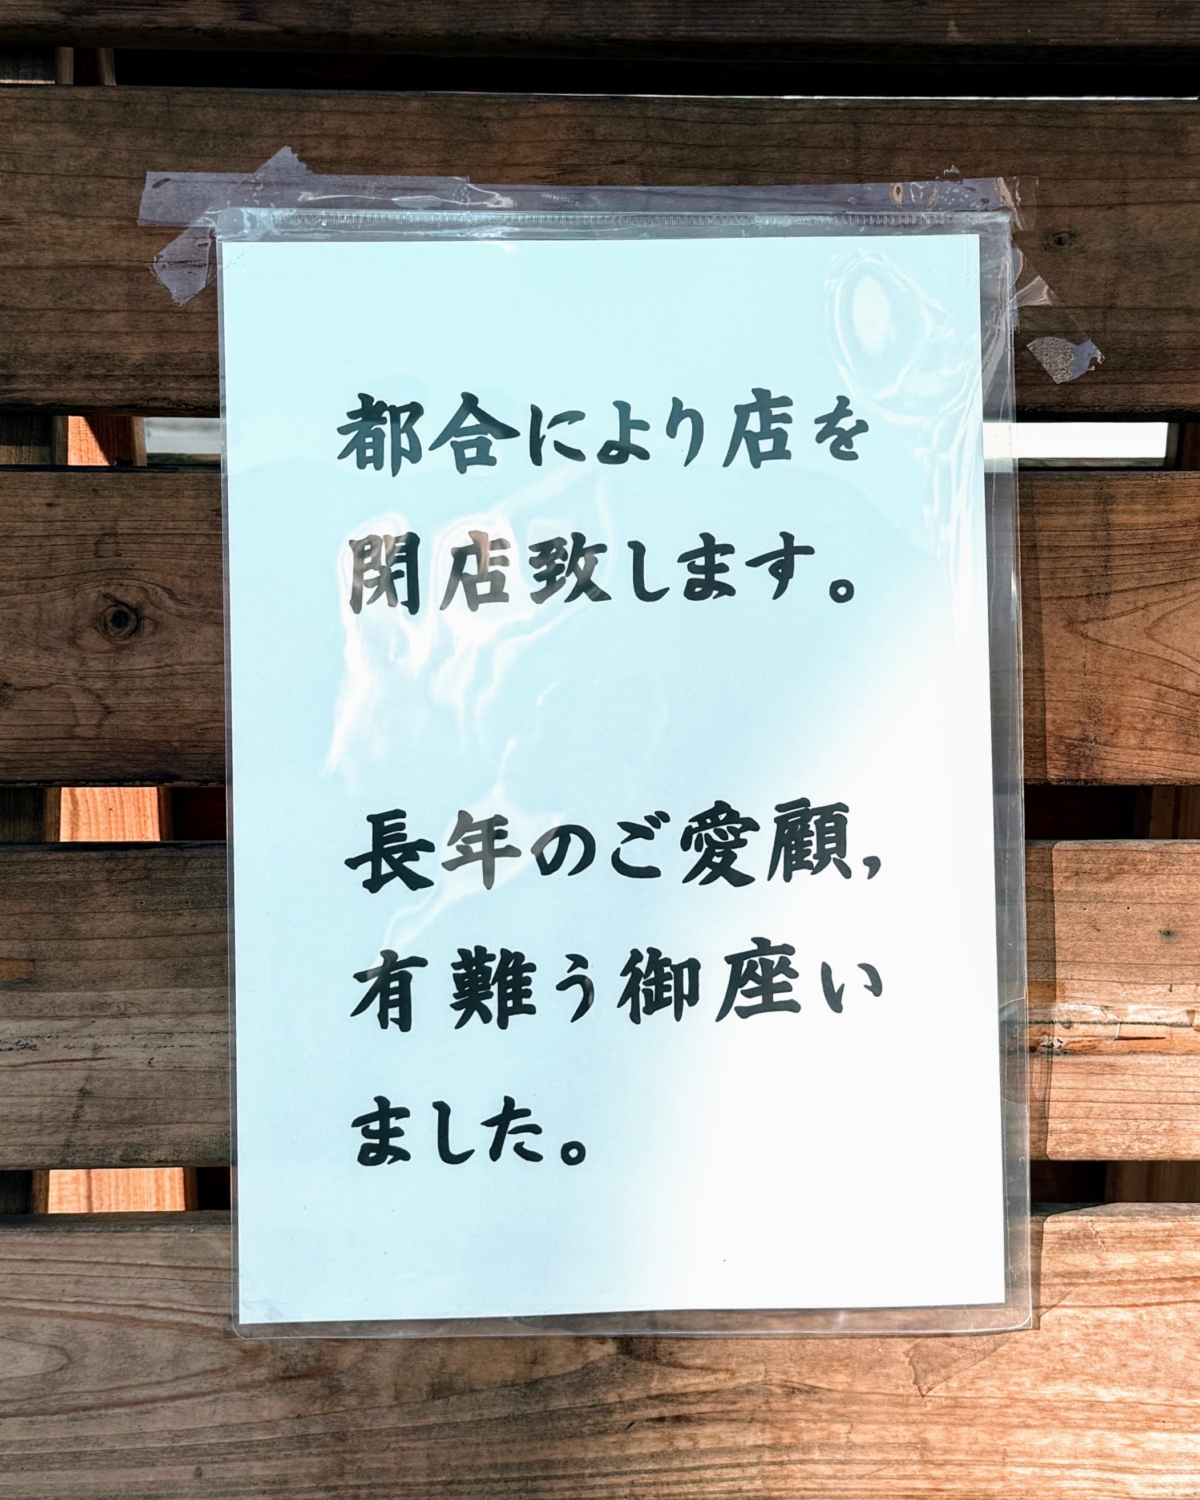 都合により店を
閉店致します。
長年のご愛顧,
有難う御座い
ました。